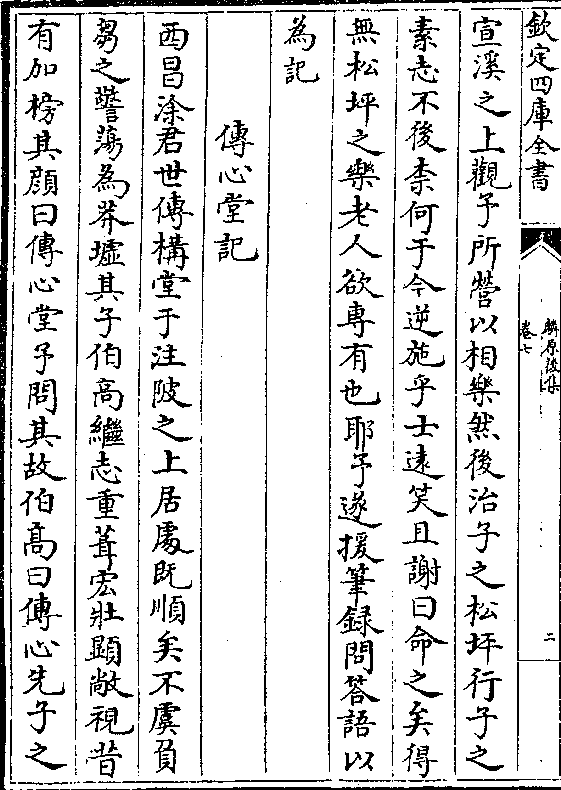 欽定四庫全書
麟原後集
卷七
二
宣溪之上觀予所營以相樂然後治子之松坪行子之
素志不後柰何于今逆施乎士遠笑且謝曰命之矣得
無松坪之樂老人欲專有也耶予遂援筆録問答語以
為記
傳心堂記
西昌涂君世傳構堂于注陂之上居處既順矣不虞負
芻之警蕩為莽墟其子伯高繼志重葺宏壯顯敞視昔
有加榜其顔曰傳心堂予問其故伯高曰傳心先子之